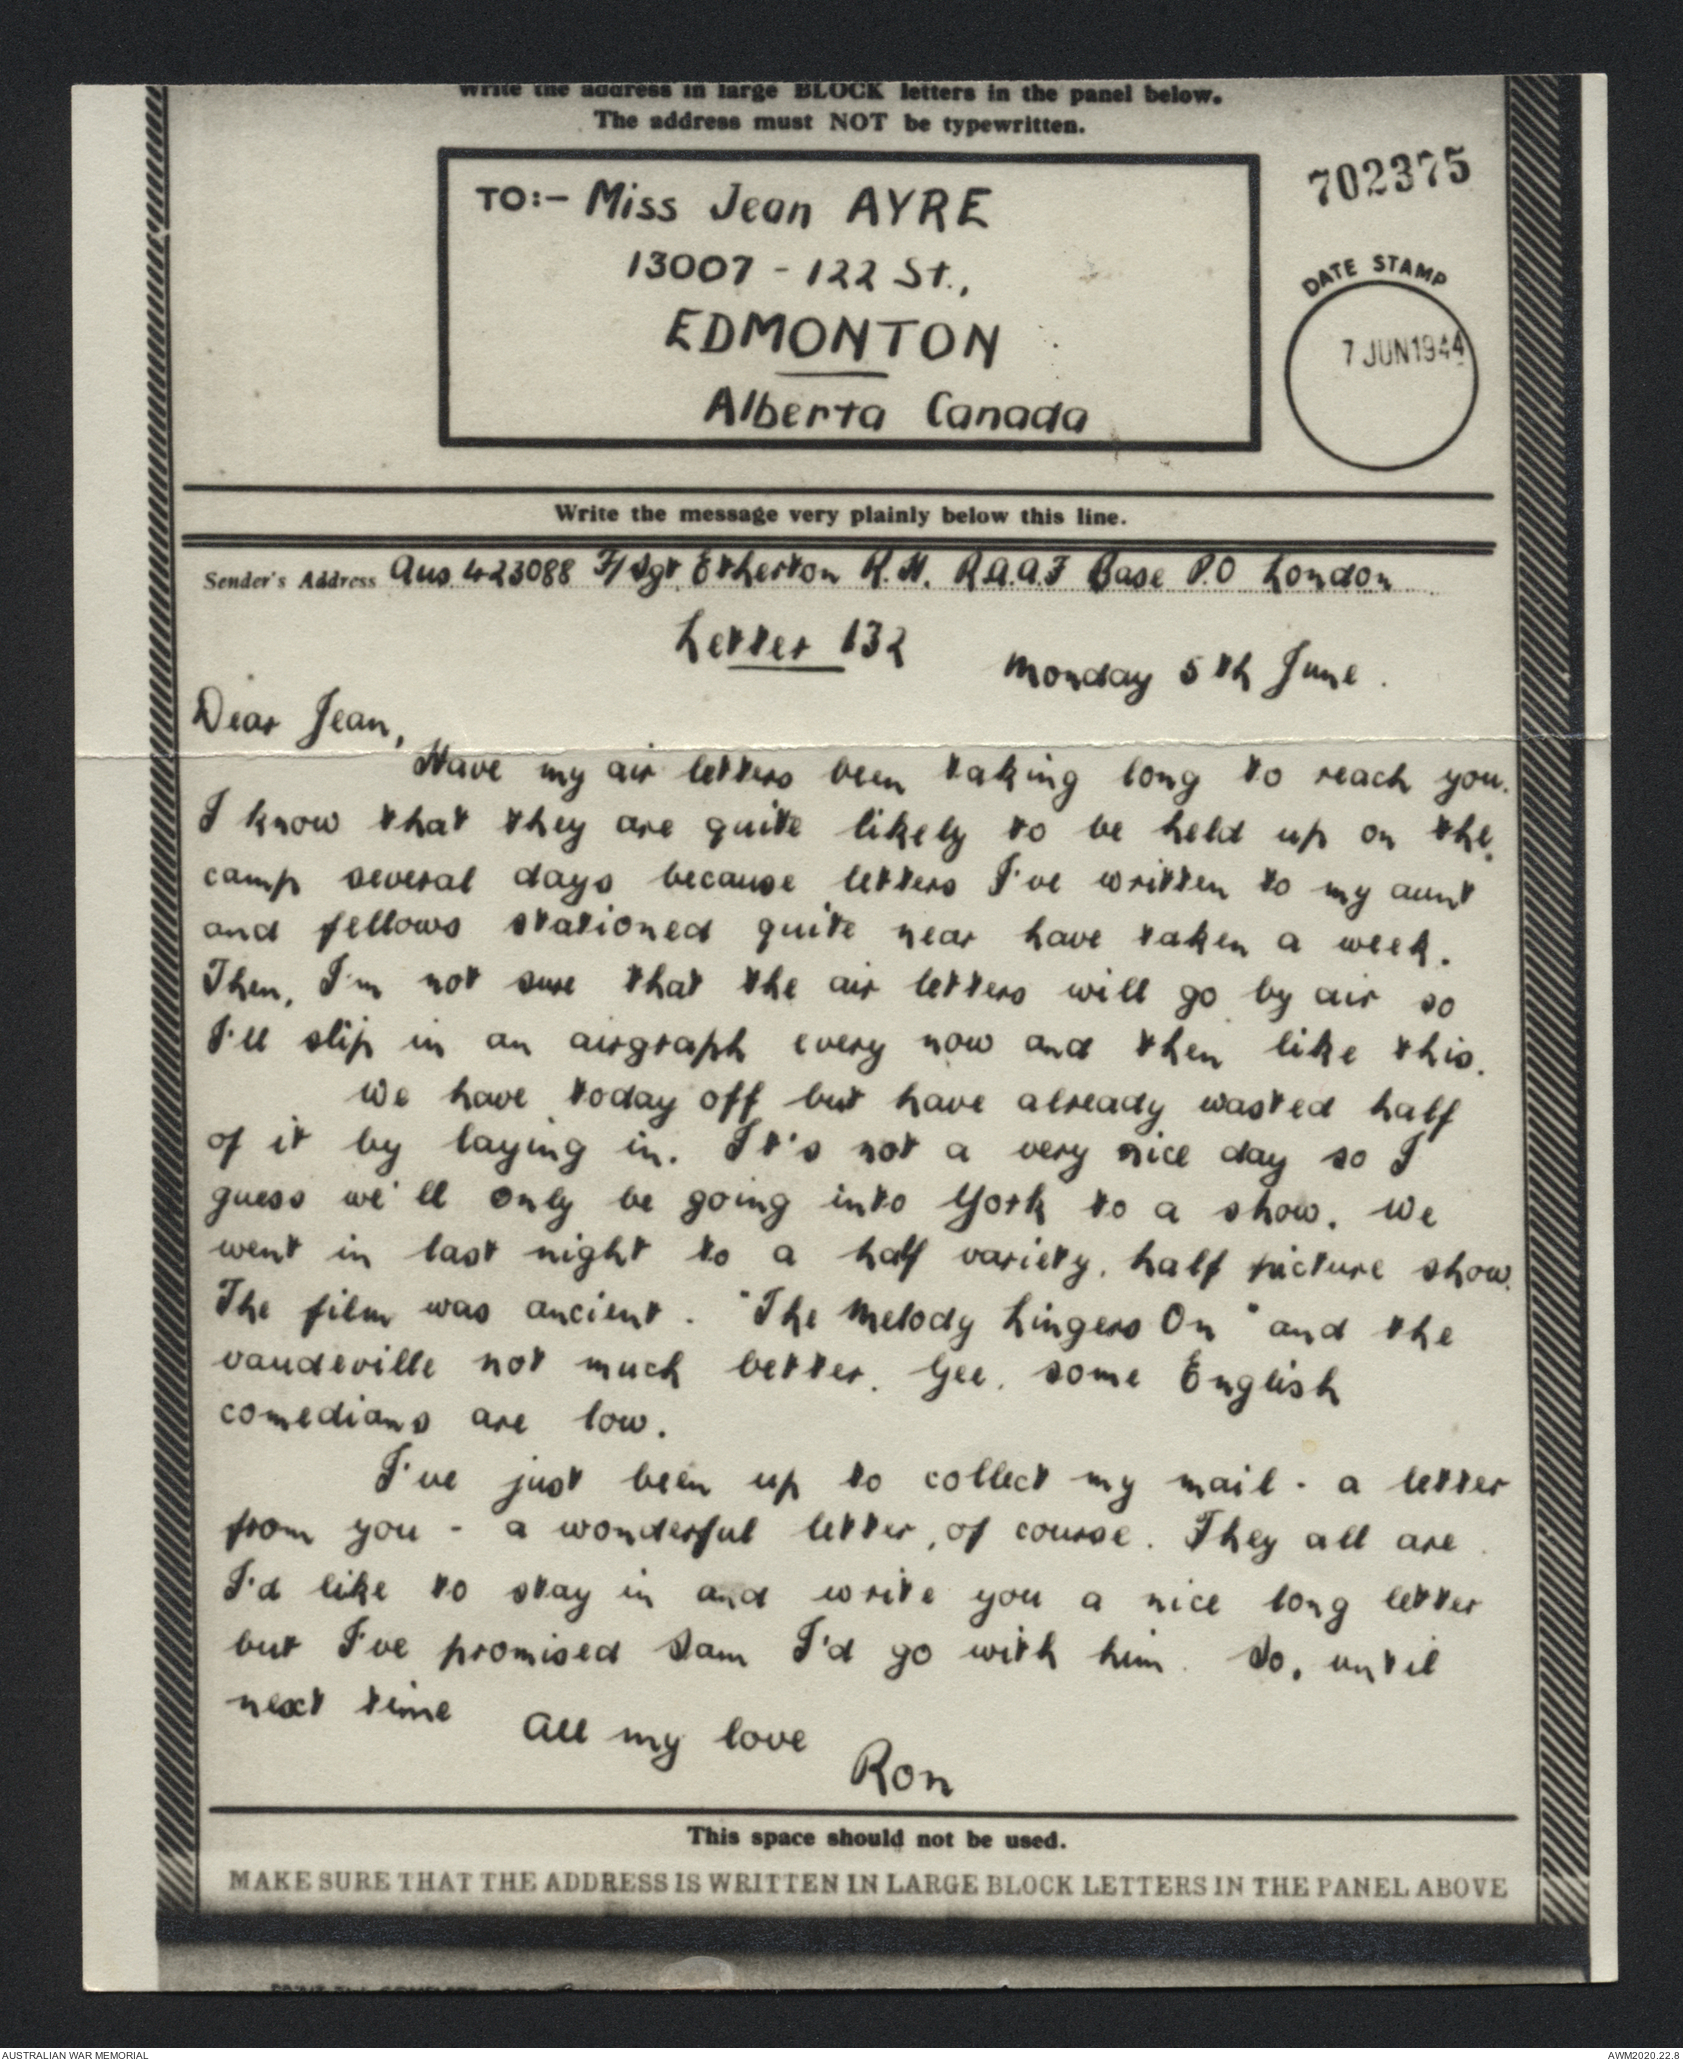 Write the address in large BLOCK letters in the panel below.
The address must NOT be typewritten.
702375
TO:- Miss Jean AYRE
13007 - 122 St.,
EDMONTON
Alberta Canada
DATE STAMP
7 JUN 1944
Write the message very plainly below this line.
Sender's Address Aus 423088 F/Sgt. Etherton R.H. R.A.A.F Base P.O London
Letter 132
Monday 5th June.
Dear Jean,
Have my air letters been taking long to reach you.
I know that they are quite likely to be held up on the
camp several days because letters I've written to my aunt
and fellows stationed quite near have taken a week.
Then, I'm not sure that the air letters will go by air so
I'll slip in an airgraph every now and then like this.
We have today off but have already wasted half
of it by laying in. It's not a very nice day so I
guess we'll only be going into York to a show. We
went in last night to a half variety, half picture show.
The film was ancient. "The Melody Lingers On" and the
vaudeville not much better. Gee, some English
comedians are low.
I've just been up to collect my mail - a letter
from you - a wonderful letter, of course. They all are
I'd like to stay in and write you a nice long letter
but I've promised Sam I'd go with him. So, until
next time
All my love
Ron
This space should not be used.
MAKE SURE THAT THE ADDRESS IS WRITTEN IN LARGE BLOCK LETTERS IN THE PANEL ABOVE
AUSTRALIAN WAR MEMORIAL
AWM2020.22.8